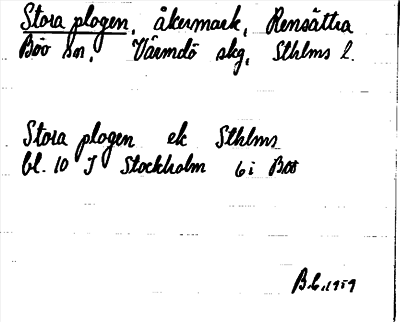 Stora plogen, åkermark, Rensättra
Böö sn, Värmdö skg, Sthlms l.
Stora plogen ek Sthlms
bl. 10 J Stockholm 6 i Boo
1959